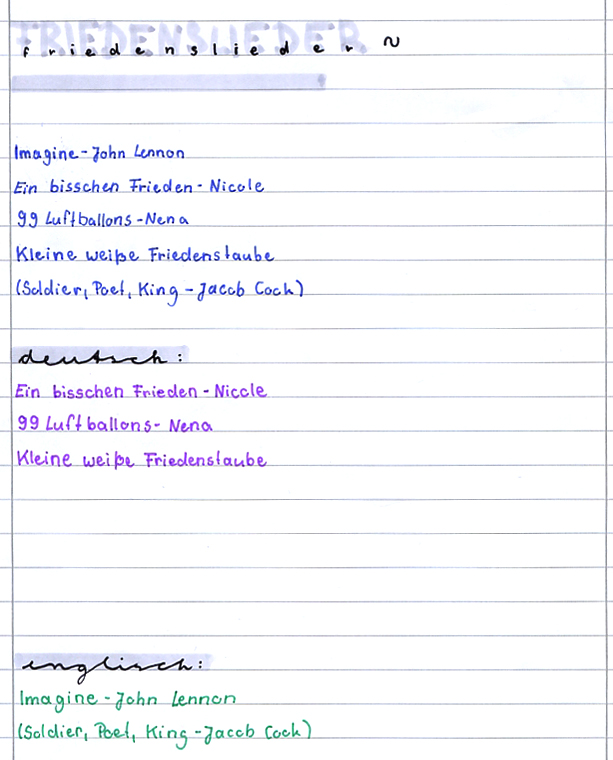 FRIEDENSLIEDER
friedenslieder ~
Imagine - John Lennon
Ein bisschen Frieden - Nicole
99 Luftballons - Nena
Kleine weiße Friedenstaube
(Soldier, Poet, King - Jacob Cock)
deutsch:
Ein bisschen Frieden - Nicole
99 Luftballons - Nena
Kleine weiße Friedenstaube
englisch:
Imagine - John Lennon
(Soldier, Poet, King - Jacob Cock)